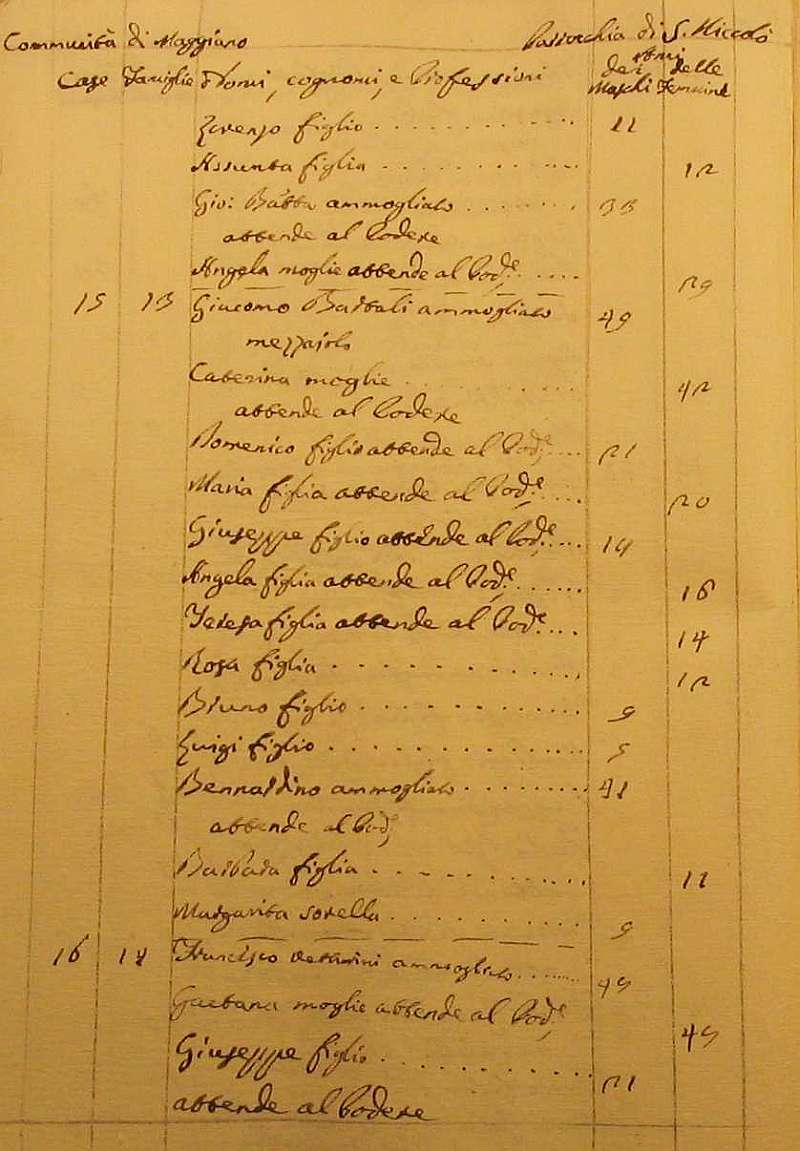 Communità di Maggiano Parrochia di S. Niccolò
Case Famiglie Nomi, cognomi, e Professioni Anni dei Maschi delle Femmine
Lorenzo figlio 11
Assunta figlia 12
Gio: Batta ammogliato 33
attende al Podere
Angela moglie attende al Pod.e 29
15 13 Giacomo Barbali ammogliato 49
mezzaiolo
Caterina moglie 42
attende al Podere
Domenico figlio attende al Pod.e 21
Maria figlia attende al Pod.e 20
Giuseppe figlio attende al Pod.e 19
Angela figlia attende al Pod.e 16
Teresa figlia attende al Pod.e 14
Rosa figlia 12
Bruno figlio 9
Luigi figlio 5
Bernardino ammogliato 41
attende al Pod.
Barbara figlia 11
Margarita sorella 9
16 14 Francesco ammogliato 45
Gaetana moglie attende al Pod.e 45
Giuseppe figlio 21
attende al Podere